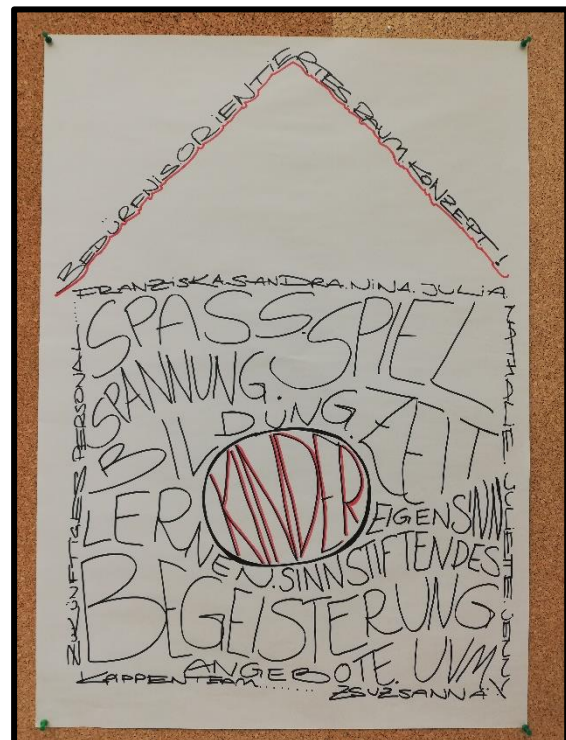 BEDÜRFNISORIENTIERTES.RAUM.KONZEPT!
FRANZISKA.SANDRA.NINA.JULIA.
NATHALIE.JULIETE.JENNY
ZUKÜNFTIGES PERSONAL....
SPASS.SPIEL
SPANNUNG.ZEIT
BILDUNG.
KINDER
LERNEN.EIGENSINN
SINNSTIFTENDES
BEGEISTERUNG.
ANGEBOTE.UVM
KAPPENTEAM........ZSUZSANNA